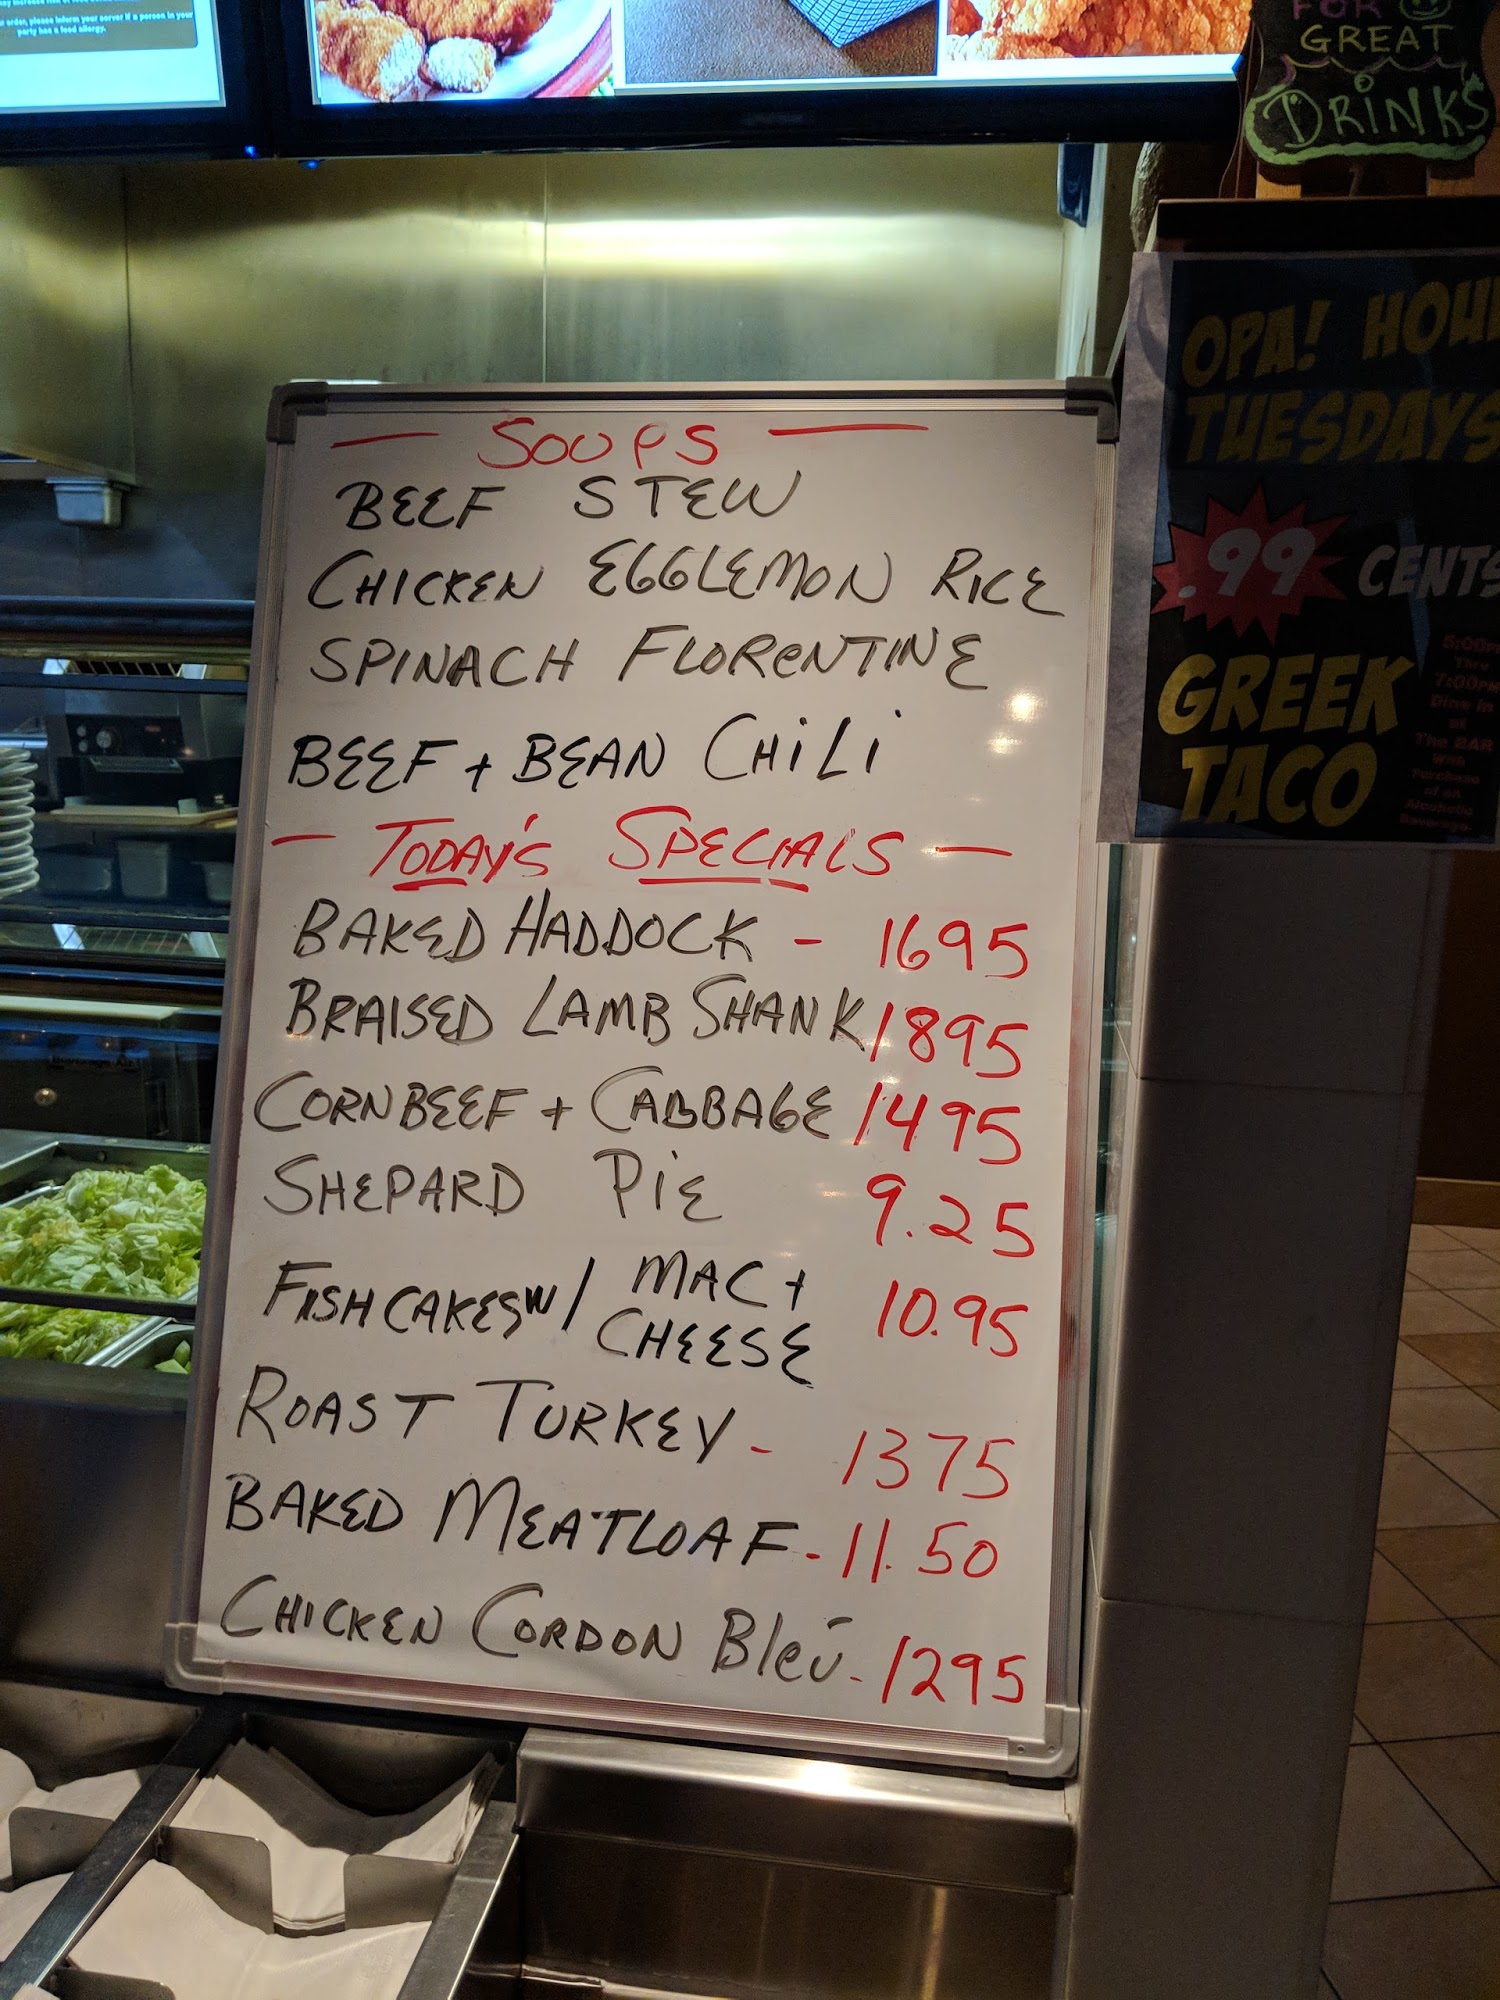 order, please inform your server if a person in your
party has a food allergy.
FOR
GREAT
DRINKS
— SOUPS —
BEEF STEW
CHICKEN EGGLEMON RICE
SPINACH FLORENTINE
BEEF + BEAN CHILI
— TODAY'S SPECIALS —
BAKED HADDOCK - 1695
BRAISED LAMB SHANK 1895
CORNBEEF + CABBAGE 1495
SHEPARD PIE 9.25
FISHCAKES W/ MAC + CHEESE 10.95
ROAST TURKEY - 1375
BAKED MEATLOAF - 11.50
CHICKEN CORDON Bleū - 1295
OPA! HOU
TUESDAYS
.99 CENTS
GREEK
TACO
5:00P
Thru
7:00PM
Dine in
at
The BAR
With
Purchase
of an
Alcoholic
Beverage.